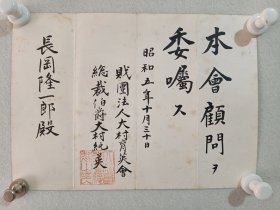 本會顧問ヲ
委囑ス
昭和五年十月三十日
財團法人大村育英會
總裁伯爵大村純英
長岡隆一郎殿